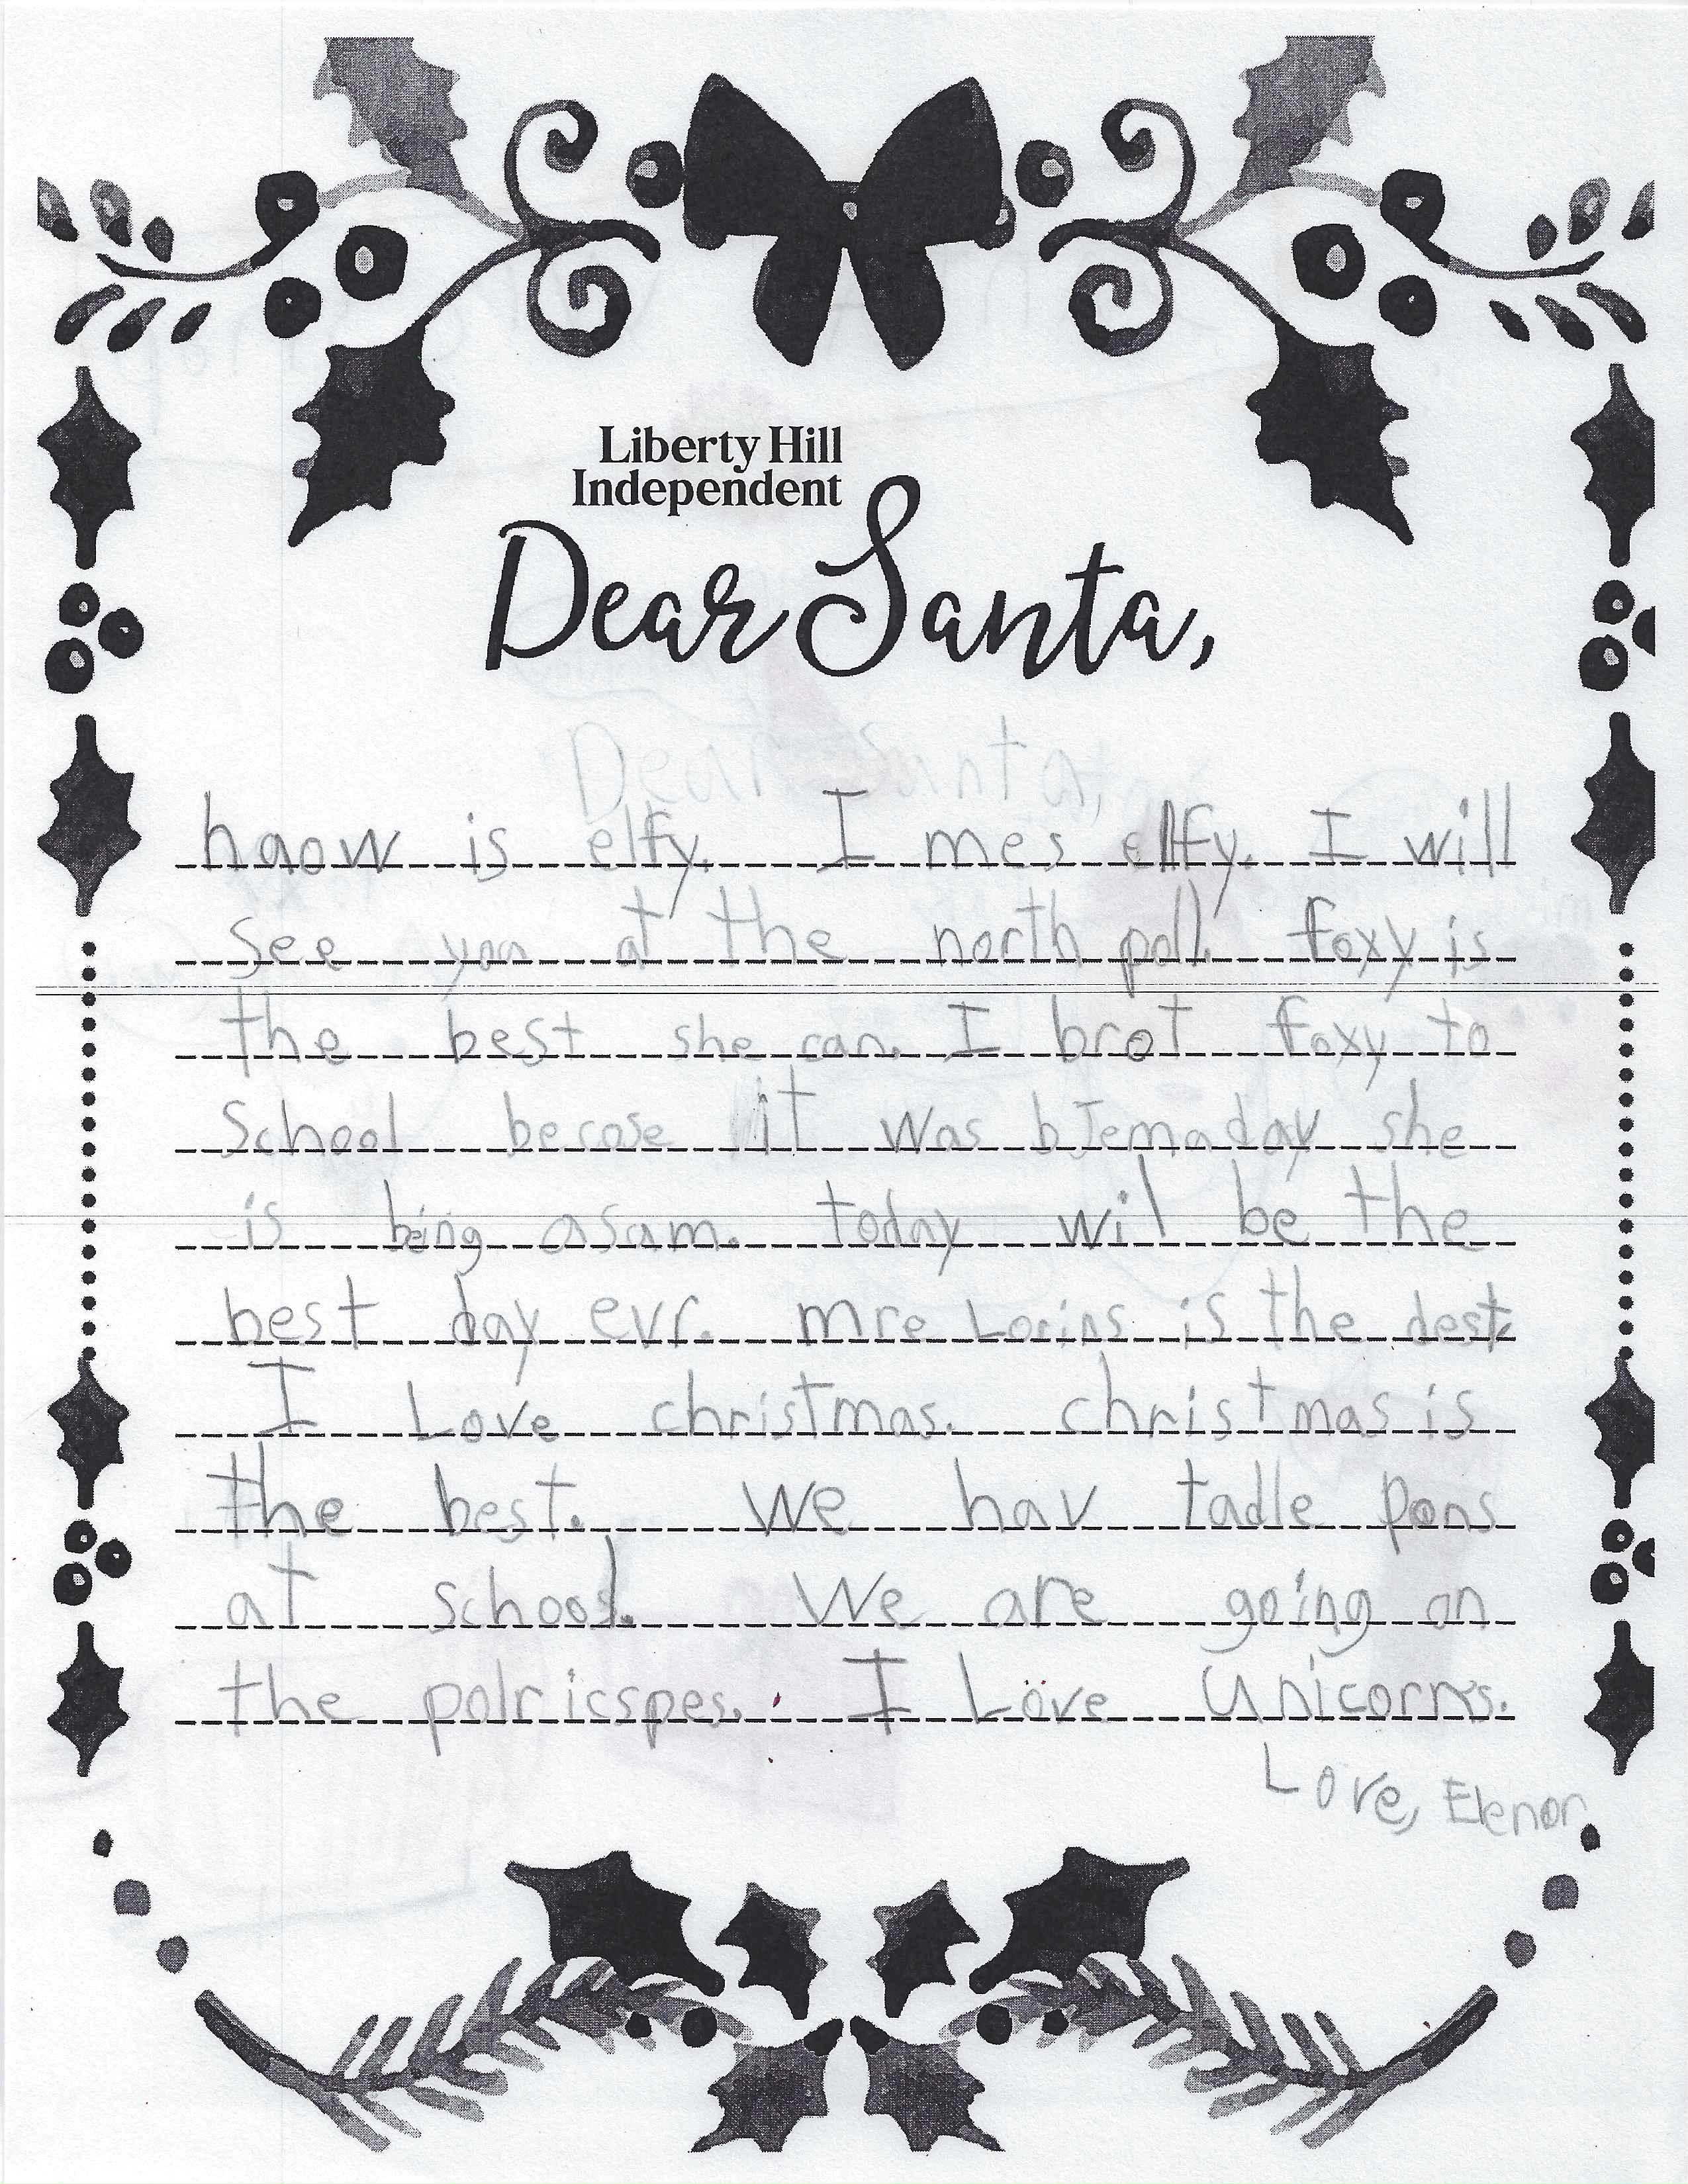 Liberty Hill
Independent
Dear Santa,
Dear Santa,
haow is elfy. I mes elfy. I will
See you at the north poll. foxy is
the best she can. I brot foxy to
School becose it was bJemaday she
is being asam. today wil be the
best day evr. mre Lorins is the dest.
I Love christmas. christmas is
the best. We hav tadle pons
at school. We are going on
the polricspes. I Love Unicorns.
Love, Elenor